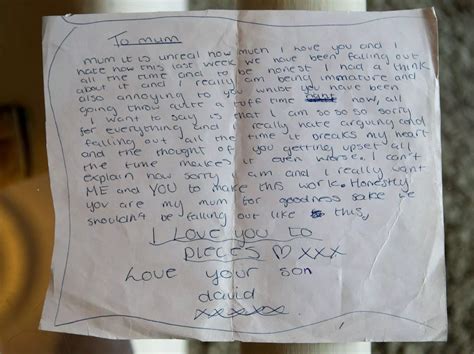 To mum
mum it is unreal how much I love you and I
hate how this last week we have been falling out
all the time and to be honest I had a think
about it and I really am being immature and
also annoying to you whilst you have been
going throw quite a tuff time now, all
I want to say is that I am so so so sorry
for everything and I really hate arguing and
falling out all the time it breaks my heart
and the thought of you getting upset all
the time makes it even worse. I can't
explain how sorry I am and I really want
ME and YOU to make this work. Honestly
you are my mum for goodness sake we
shouldn't be falling out like this,
I Love you to
pieces ♡ xxx
Love your son
david
xxxxxx